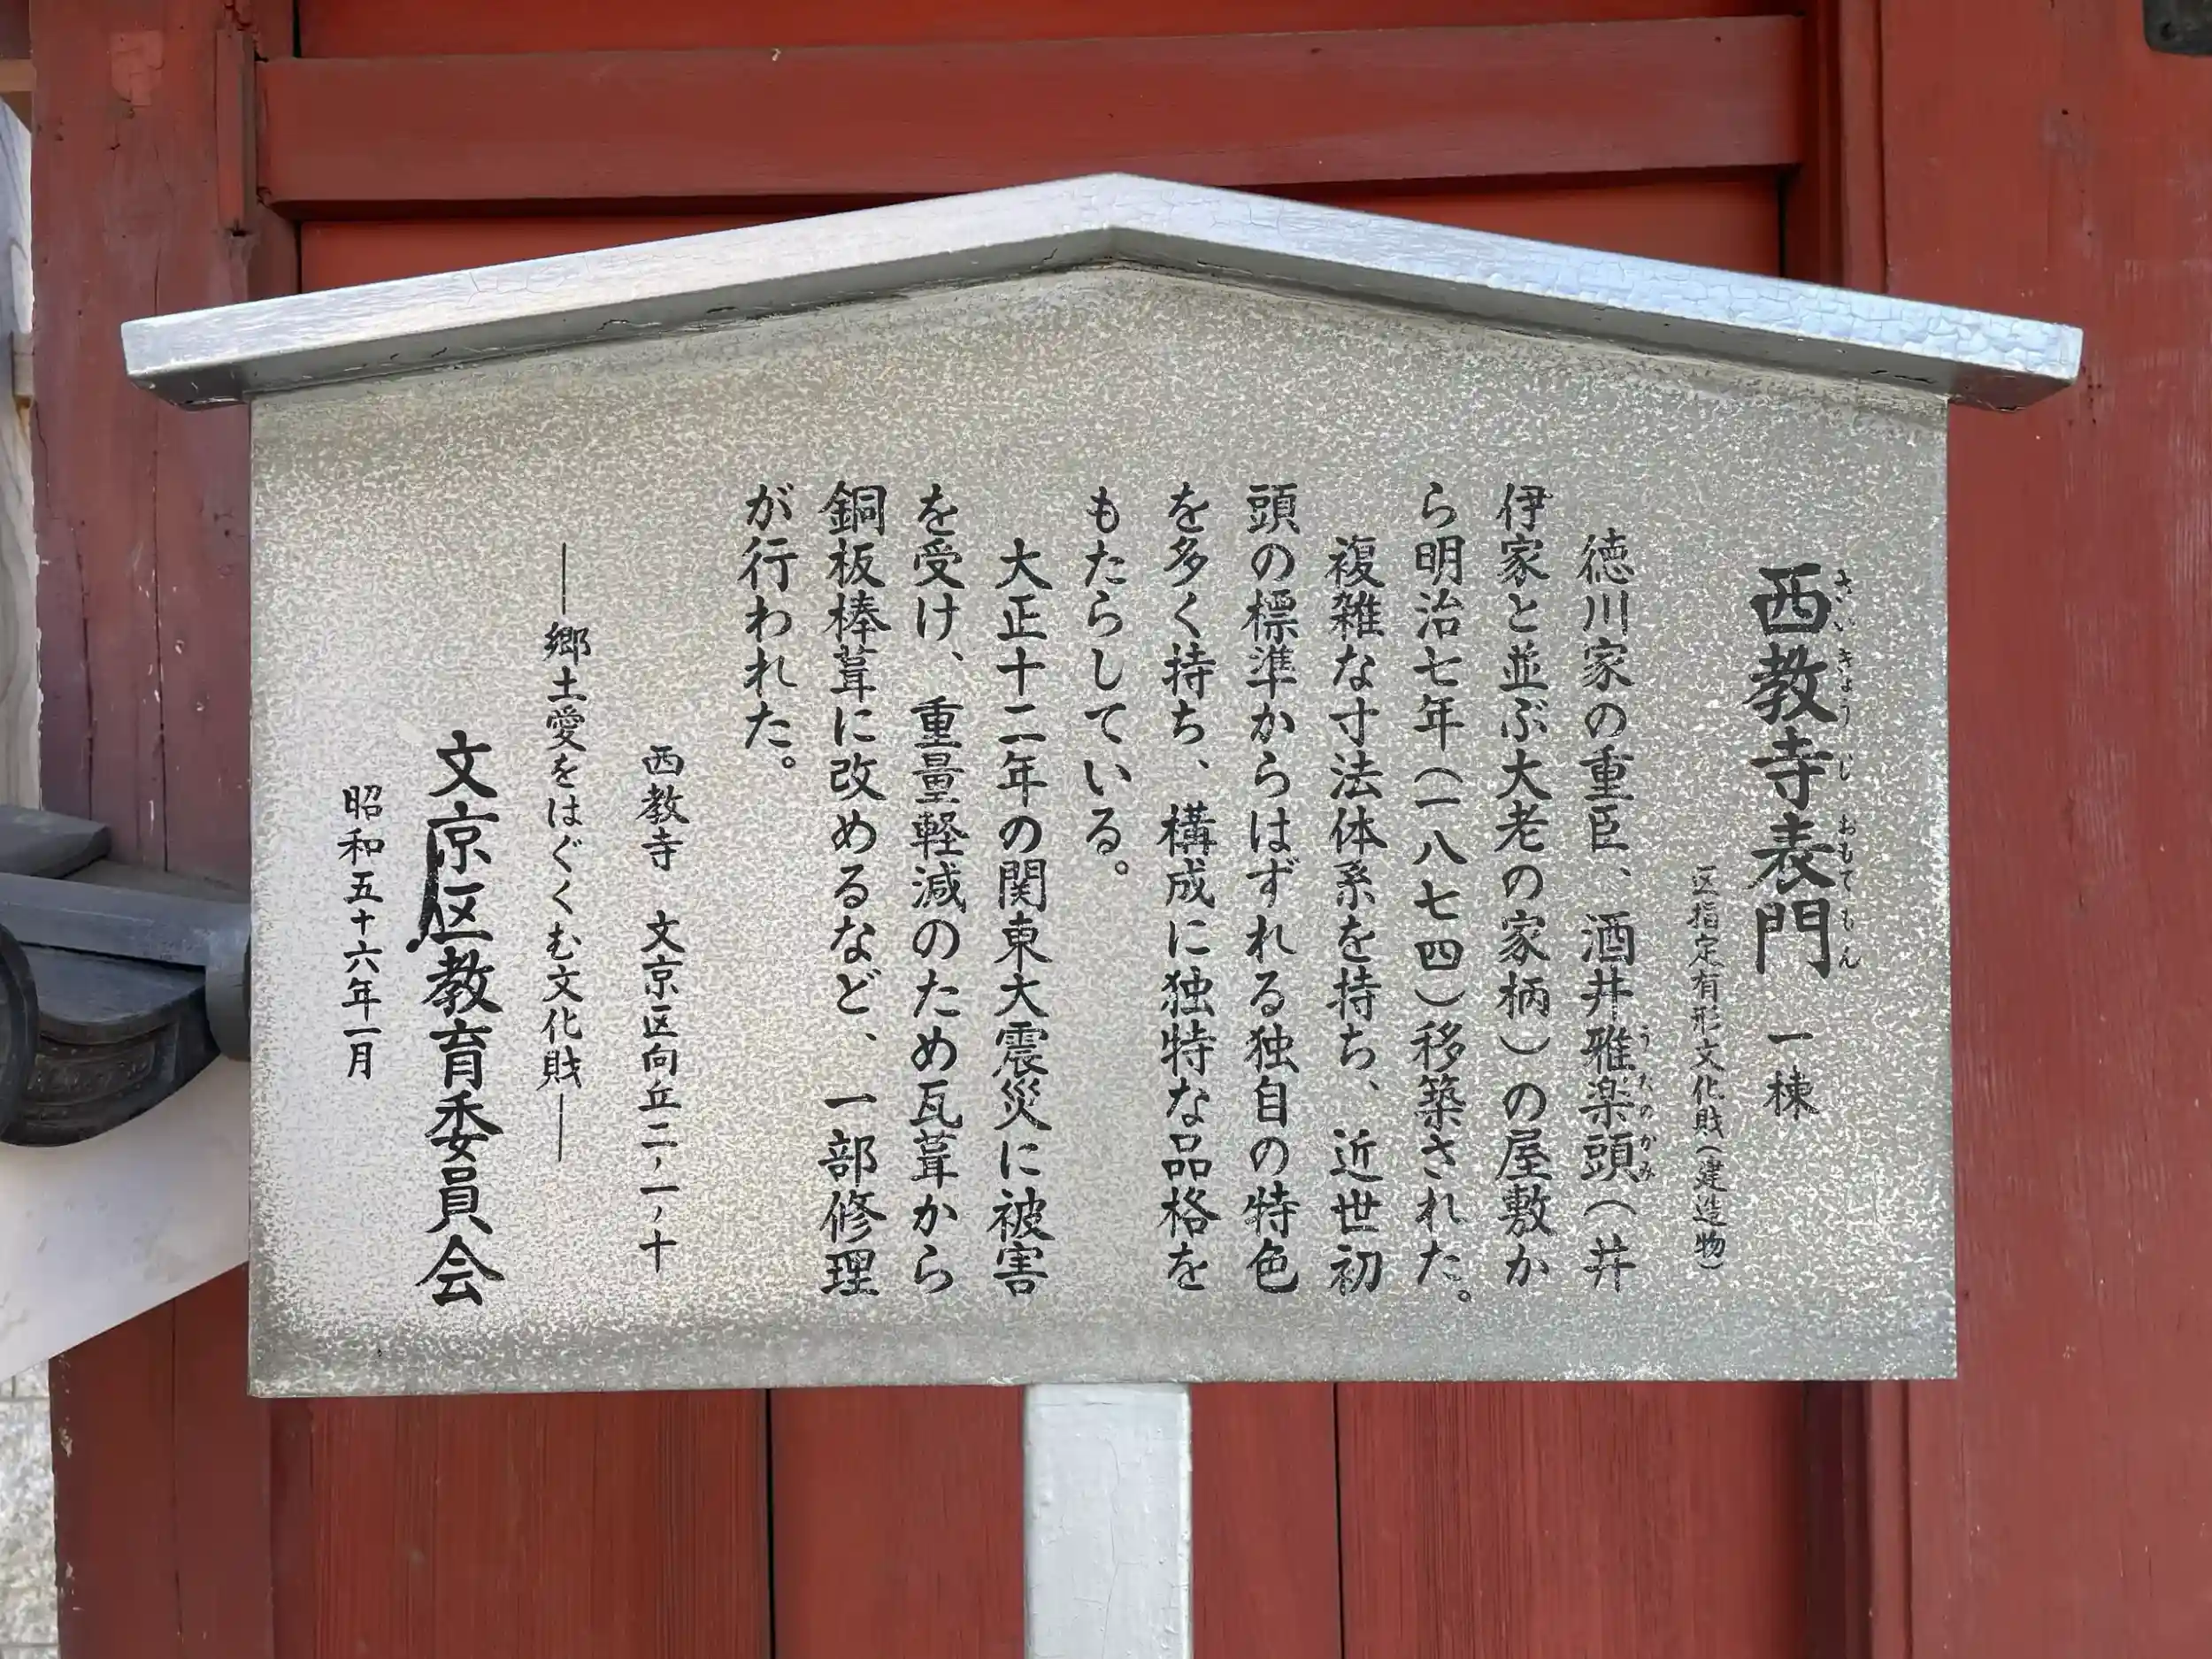 西教寺表門 一棟
さいきょうじおもてもん
区指定有形文化財(建造物)
徳川家の重臣、酒井雅楽頭(井
うたのかみ
伊家と並ぶ大老の家柄)の屋敷か
ら明治七年(一八七四)移築された。
複雑な寸法体系を持ち、近世初
頭の標準からはずれる独自の特色
を多く持ち、構成に独特な品格を
もたらしている。
大正十二年の関東大震災に被害
を受け、重量軽減のため瓦葺から
銅板棒葺に改めるなど、一部修理
が行われた。
西教寺 文京区向丘二ノ一ノ十
―郷土愛をはぐくむ文化財―
文京区教育委員会
昭和五十六年一月